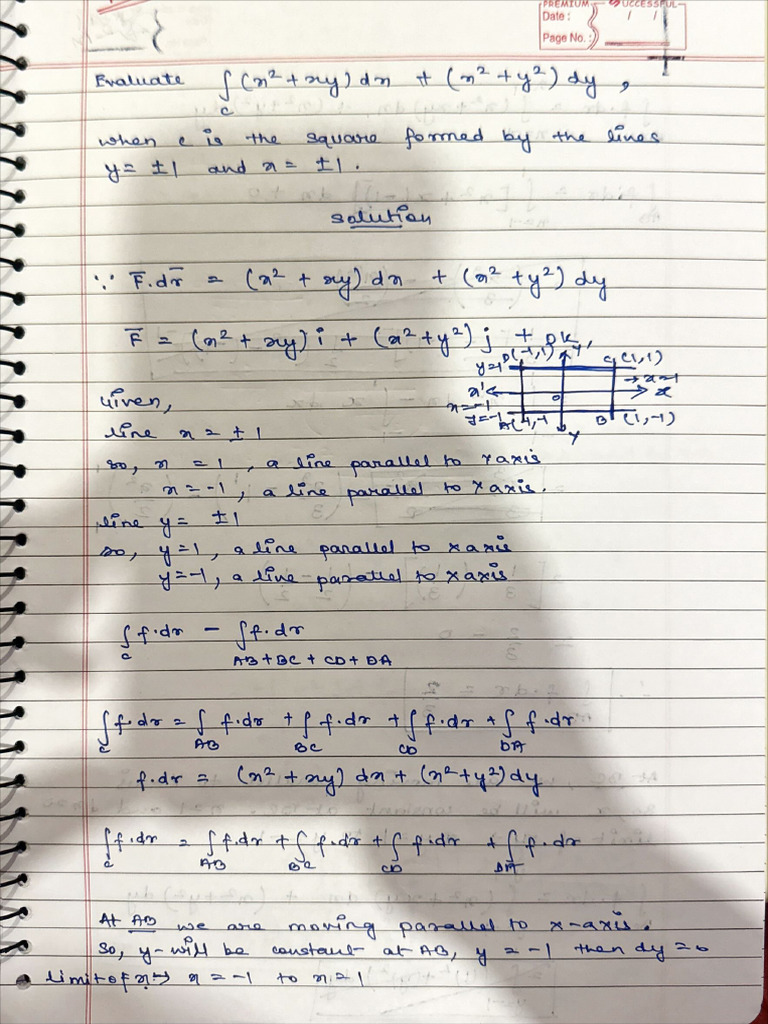 PREMIUM SUCCESSFUL
Date : / /
Page No. :
Evaluate ∫_c (x² + xy) dx + (x² + y²) dy ,
when c is the square formed by the lines
y = ±1 and x = ±1.
solution
∵ F̅.dr̅ = (x² + xy) dx + (x² + y²) dy
F̅ = (x² + xy) i + (x² + y²) j + 0k,
y=1 D(-1,1) Y C (1,1)
x' → x=1
x=-1 O x
y=-1 A(-1,-1 Y B (1,-1)
Given,
line x = ±1
so, x = 1 , a line parallel to Y axis
x = -1 , a line parallel to Y axis.
line y = ±1
so, y = 1 , a line parallel to x axis
y = -1 , a line parallel to x axis
∫_c f.dr - ∫_{AB+BC+CD+DA} f.dr
∫_c f.dr = ∫_AB f.dr + ∫_BC f.dr + ∫_CD f.dr + ∫_DA f.dr
f.dr = (x² + xy) dx + (x² + y²) dy
∫_c f.dr = ∫_AB f.dr + ∫_BC f.dr + ∫_CD f.dr + ∫_DA f.dr
At AB we are moving parallel to x-axis.
So, y-will be constant at AB, y = -1 then dy = 0
limit of x→ x = -1 to x = 1